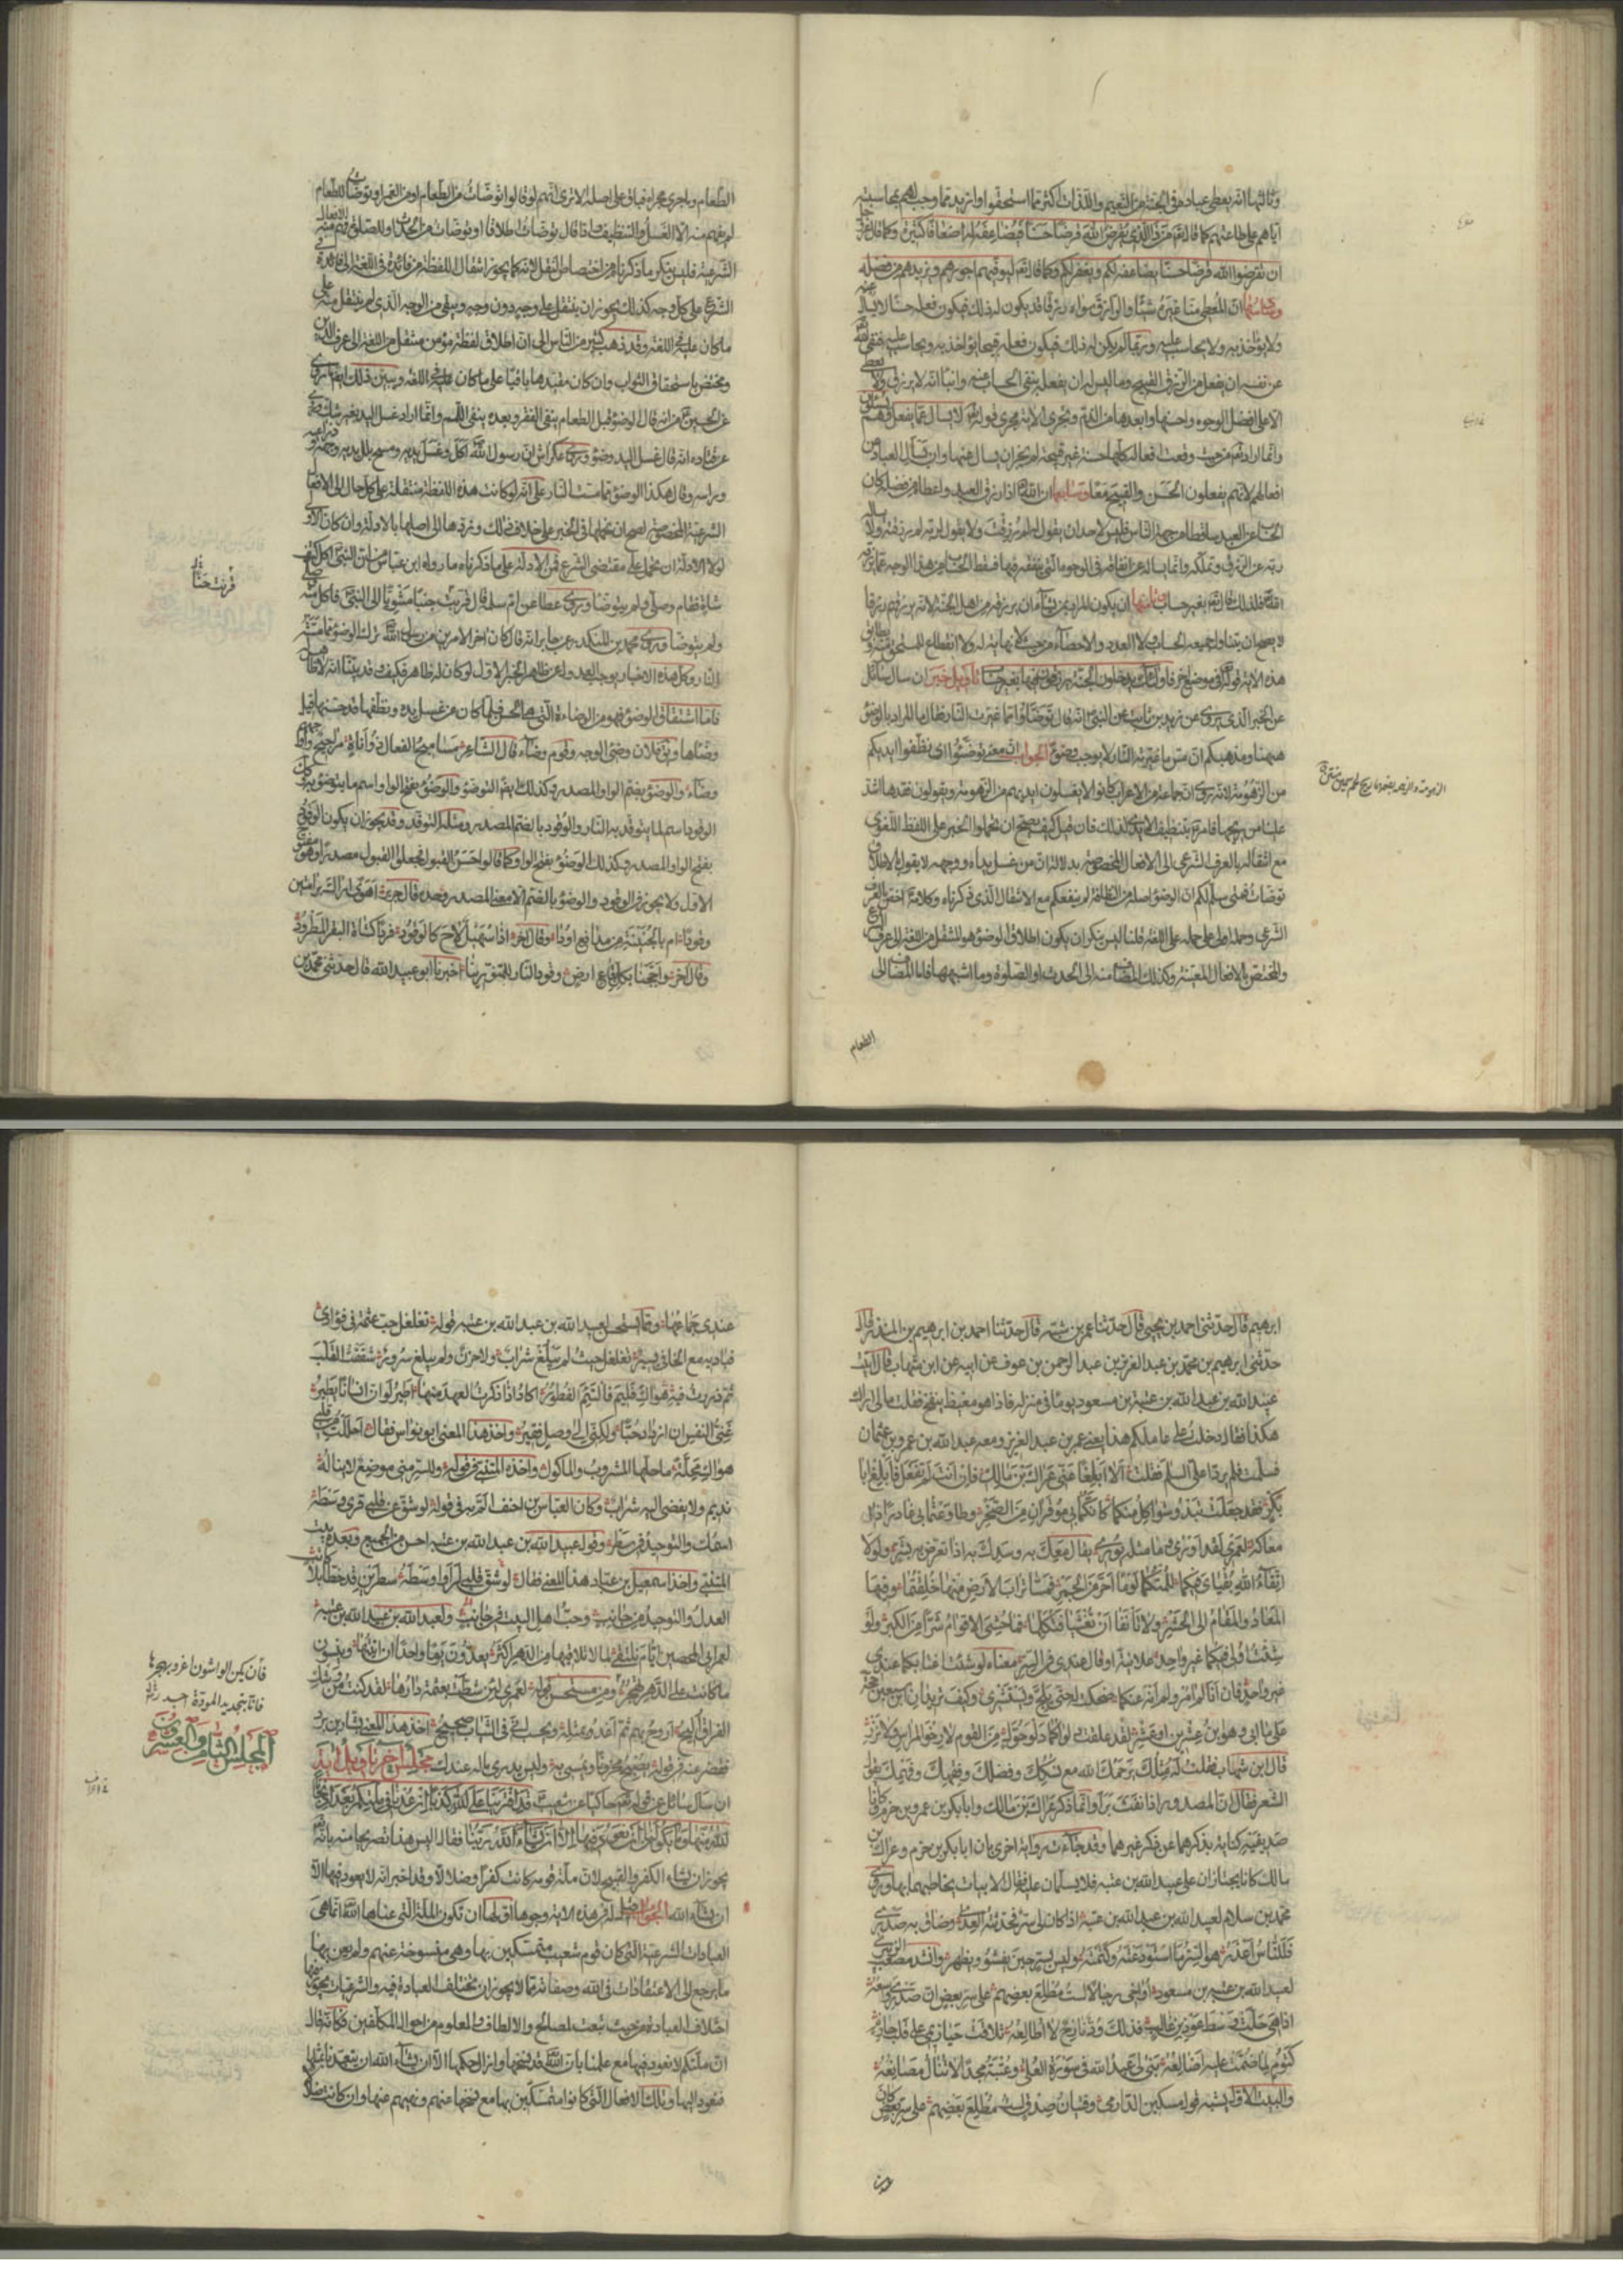 وثالثها انه يعطى عباده فى الجنة من النعيم واللذات اكثر مما استحقوا وازيد مما وجب لهم بمحاسبته
اياهم على طاعتهم كما قال تعالى من ذا الذى يقرض الله قرضا حسنا فيضاعفه له اضعافا كثيرة وكما قال
ان تقرضوا الله قرضا حسنا يضاعفه لكم ويغفر لكم وكما قال تعالى ليوفيهم اجورهم ويزيدهم من فضله
ان المعطى منا غيره شيئا والرازق سواه رزقا قد يكون له ذلك فيكون فعله حسنا لا يسال عنه
ولا يؤاخذ به ولا يحاسب عليه وربما لم يكن له ذلك فيكون فعله قبيحا يؤاخذ به ويحاسب عليه فنفى الله
عن نفسه ان يفعل من الرزق القبيح وما ليس له ان يفعله بنفى الحساب عنه وانبأ انه لا يرزق ولا يعطى
الا على افضل الوجوه واحسنها وابعدها من الذم وتجرى الاية مجرى قوله تعالى لا يسال عما يفعل وهم يسئلون
وانما اراد انه من حيث وقعت افعاله كلها حسنة غير قبيحة لم يجز ان يسال عنها وان سئل العباد عن
افعالهم لانهم يفعلون الحسن والقبيح معا وسابعها ان الله تعالى اذا رزق العبد واعطاه من فضله كان
الحساب عن العبد ساقطا من جهة الناس فليس لاحد ان يقول له لم رزقت ولا يقول لربه لم رزقته ولا يساله
ربه عن الرزق وتملكه وانما يساله عن انفاقه فى الوجوه التى ينفقه فيها فسقط الحساب من هذا الوجه عما يرزقه
الله فلذلك قال تعالى بغير حساب وثامنها ان يكون المراد بمن يشآء ان يرزقه من اهل الجنة لانه يرزقهم رزقا
لا يصح ان يتناول جميعه الحساب ولا العدد والاحصآء من حيث لا نهاية له ولا انقطاع للمستحق منه ويطابق
هذه الاية قوله تعالى فى موضع اخر فاولئك يدخلون الجنة يرزقون فيها بغير حساب تاويل خبر ان سال سائل
عن الخبر الذى يروى عن زيد بن ثابت عن النبى انه قال توضؤا مما غيرت النار فقال ما المراد بالوضوء
ههنا ومذهبكم ان مس ما غيرته النار لا يوجب وضوءا الجواب ان معنى توضؤا اى نظفوا ايديكم
من الزهومة لانه روى ان جماعة من الاعراب كانوا لا يغسلون ايديهم من الزهومة ويقولون فقدها اشد
علينا من ريحها فامر بتنظيف الايدى لذلك فان قيل كيف يصح ان تحملوا الخبر على اللفظ اللغوى
مع انتقاله بالعرف الشرعى الى الافعال المخصوصة بدلالة ان من غسل يداه ووجهه لا يقول بالاطلاق
توضات فمتى سلم لكم ان الوضوء اصله من النظافة لم ينفعكم مع الانتقال الذى ذكرناه وكلامه اخص بالعرف
الشرعى وحمله اولى على حمله على اللغة قلنا ليس ننكر ان يكون اطلاق الوضوء هو المنتقل من اللغة الى عرف الشرع
والمختص بالافعال المعينة وكذلك المضاف منه الى الحدث او الصلوة وما اشبههما فاما المضاف الى
الطعام
الطعام وما جرى مجراه فباق على اصله الا ترى انهم لو قالوا توضات من الطعام او من الغمر او توضات للطعام
لم يفهم منه الا الغسل والتنظيف واذا قال توضات اطلاقا او توضات من الحدث او للصلوة فهم منه الافعال
الشرعية فليس ننكر ما ذكرناه من اختصاص النقل لانه كما يجوز انتقال اللفظة من فائدة فى اللغة الى فائدة فى
الشرع على كل وجه كذلك يجوز ان ينتقل على وجه دون وجه ويبقى من الوجه الذى لم ينتقل منه على
ما كان عليه فى اللغة وقد ذهب كثير من الناس الى ان اطلاق لفظة مؤمن منتقل من اللغة الى عرف الدين
ومختص باستحقاق الثواب وان كان مقيدها باقيا على ما كان عليه فى اللغة ويبين ذلك ايضا ما روى
عن الحسن من انه قال الوضوء قبل الطعام ينفى الفقر وبعده ينفى اللمم وانما اراد غسل اليد بغير شك وروى
عن قتادة انه قال غسل اليد وضوء وروى عكراش ان رسول الله اكل وغسل يديه ومسح ببلل يديه وجهه وذراعيه
وراسه وقال هكذا الوضوء مما مست النار على انه لو كانت هذه اللفظة منتقلة على كل حال الى الافعال
الشرعية المخصوصة لصح ان نحملها فى الخبر على خلاف ذلك ونردها الى اصلها بالادلة وان كان الاولى
لولا الادلة ان تحمل على مقتضى الشرع فمن الادلة على ما ذكرناه ما رواه ابن عباس من ان النبى اكل كتف
شاة فقام وصلى ولم يتوضا وروى عطا عن ام سلمة قال قربت جنبا مشويا الى النبى فاكل منه وصلى
ولم يتوضا وروى محمد بن المنكدر عن جابر انه قال كان اخر الامرين من رسول الله ترك الوضوء مما مسته
النار وكل هذه الاخبار يوجب العدول عن ظاهر الخبر الاول لو كان له ظاهر فكيف وقد بينا انه لا ظاهر له
فاما اشتقاق الوضوء فهو من الوضاءة التى هى الحسن فلما كان من غسل يده ونظفها قد حسنها قيل
وضأها ويق فلان وضئ الوجه وقوم وضآء قال الشاعر مساميح الفعال ذوو اناة مراجيح واوجههم
وضآء والوضوء بضم الواو المصدر وكذلك ايضا التوضؤ والوضوء بفتح الواو اسم ما يتوضؤ به وكذلك
الوقود اسم لما يتوقد به النار والوقود بالضم المصدر ومثله التوقد وقد يجوز ان يكون الوقود
بفتح الواو المصدر وكذلك الوضوء بفتح الواو كما قالوا حسن القبول فجعلوا القبول مصدرا وهو مفتوح
الاول ولا يجوز فى الوقود والوضوء بالضم الا معنى المصدر وحده قال جرير اهوى اراك برامتين
وقودا ام بالجنينة من مدافع اودا وقال اخر اذا سهيل لاح كالوقود فردا كشاة البقر المطرود
وقال اخر واججنا بكل يفاع ارض وقود النار للمتنورينا اخبرنا ابو عبيد الله قال حدثنى محمد بن
قربت جنبا
ابرهيم قال حدثنى احمد بن يحيى قال حدثنا عمر بن شبه قال حدثنا احمد بن ابرهيم بن المنذر قال
حدثنى ابرهيم بن محمد بن عبد العزيز بن عبد الرحمن بن عوف عن ابيه عن ابن شهاب قال اتيت
عبيد الله بن عبد الله بن عتبة بن مسعود يوما فى منزله فاذا هو مغيظ ينفخ فقلت ما لى اراك
هكذا فقال دخلت على عاملكم هذا يعنى عمر بن عبد العزيز ومعه عبد الله بن عمرو بن عثمان
فسلمت فلم يردا على السلم فقلت الا ابلغا عنى عراك بن مالك فان انت لم تفعل فابلغ ابا
بكر فقد جعلت تبدو شواكل منكما كانكما بى موقران من الصخر وطاوعتما بى غادرا ذا
معاكة لعمرى لقد اورى وما مثله يورى
ولولا
اتقآء الله بقياى فيكما للمتكما لوما احر من الجمر فمسا تراب الارض منها خلقتما وفيها
المعاد والمقام الى الحشر ولا تانفا ان تغشيا فتكلما فما حشى الاقوام شرا من الكبر ولو
شئت ادلى فيكما غير واحد علانية او قال عندى فى السر معناه لو شئت اغتابكما عندى
غير واحد فان انا لم آمر ولم انه عنكما ضحكت له حتى يلج ويستشرى وكيف تريدان ابن سبعين حجة
على ما اتى وهو ابن عشرين او عشر لقد علقت دلوا كما دلو حول من القوم لا رخو المراس ولا نزر
قال ابن شهاب فقلت له مثلك يرحمك الله مع نسكك وفضلك وفقهك وفهمك يقول
الشعر فقال ان المصدور اذا نفث برأ وانما ذكر عراك بن مالك وابا بكر بن عمرو بن حزم وكانا
صديقيه كناية بذكرهما عن ذكر غيرهما وقد جآءت رواية اخرى بان ابا بكر بن حزم وعراك بن
مالك كانا يجتازان على عبيد الله بن عتبه فلا يسلمان عليه فقال الابيات يخاطبهما بها وروى
محمد بن سلام لعبيد الله بن عبد الله بن عتبة اذا كان لى سر فحدثته العدى وضاق به صدرى
فللناس اعذر هو السر ما استودعته وكتمته وليس بسر حين يفشو ويظهر وانشد مصعب الزبيرى
لعبد الله بن عتبة بن مسعود اواخى رجالا لست مطلع بعضهم على سر بعض ان صدرى واسعه
اذا هى حلت وسط عوذ بن غالب فذلك ود نازح لا اطالعه تلاقت حيازيمى على قلب حازم
كتوم لما ضمت عليه اضالعه بنى لى عبد الله فى سورة العلى وعتبة مجدا لا تنال مصانعه
والبيت الاول يشبه قول مسكين الدارمى وفتيان صدق لست مطلع بعضهم على سر بعض كان
عندى جماعها ومما يستحسن لعبيد الله بن عبد الله بن عتبه قوله تغلغل حب عثمة فى فؤادى
فباديه مع الخافى يسير تغلغل حيث لم يبلغ شراب ولا حزن ولم يبلغ سرور شققت القلب
ثم ذررت فيه هواك فليم فالتئم الفطور اكاد اذا ذكرت العهد منها اطير لو ان انسانا يطير
غنى النفس ان ازداد حبا ولكنى الى وصل فقير واخذ هذا المعنى ابو نواس فقال احللت من قلبى
هواك محلة ما حلها المشروب والماكول واخذه المتنبى فى قوله وللسر منى موضع لا يناله
نديم ولا يفضى اليه شراب وكان العباس بن احنف الم به فى قوله لو شق عن قلبى قرى وسطه
اسمك والتوحيد فى سطر وقول عبيد الله بن عبد الله بن عتبه احسن من الجميع وبعده بيت
المتنبى واخذ اسمعيل بن عباد هذا المعنى فقال لو شق قلبى لراوا وسطه سطرين قد خطا بلا كاتب
العدل والتوحيد من جانب وحب اهل البيت فى جانب ولعبد الله بن عبد الله بن عتبة
لعمر ابى المحصين ايام نلتقى لما لا نلاقيها من الدهر اكثر يعدون يوما واحدا ان اتيتها وينسون
ما كانت على الدهر تهجر ومن مستحسن قوله لعمرى لئن شطت بعثمة دارها لقد كنت من وشك
الفراق اليح اروح بهم ثم اغدو بمثله ويحسب انى فى الثياب صحيح اخذ هذا المعنى بشار بن برد
فقصر عنه فى قوله يصبح محزونا ويمسى به وليس يدرى ما له عندك مجلس آخر تاويل اية
ان سال سائل عن قوله تعالى حاكيا عن شعيب قد افترينا على الله كذبا ان عدنا فى ملتكم بعد اذ نجانا
الله منها وما يكون لنا ان نعود فيها الا ان يشآء الله ربنا فقال اليس هذا تصريحا منه بانه
يجوز ان يشاء الكفر والقبيح لان ملة قومه كانت كفرا وضلالا وقد اخبر انه لا يعود فيها الا
ان يشآء الله الجواب قيل له فى هذه الاية وجوه اولها ان تكون الملة التى عناها الله انما هى
العبادات الشرعية التى كان قوم شعيب متمسكين بها وهى منسوخة عنهم ولم يعن بها
ما يرجع الى الاعتقادات فى الله وصفاته مما لا يجوز ان تختلف العبادة فيه والشرعيات يجوز فيها
اختلاف العبادة من حيث تبعت المصالح والالطاف والمعلوم من احوال المكلفين فكانه قال
ان ملتكم لا نعود فيها مع علمنا بان الله قد نسخها وازال حكمها الا ان يشآء الله ان يتعبدنا بمثلها
فنعود اليها وتلك الافعال التى كانوا متمسكين بها مع نسخها عنهم ونهيهم عنها وان كانت ضلالا
فان يكن الواشون اغروا بهجرها
فانا بتجديد المودة اجدر
المجلس الثامن والعشرون